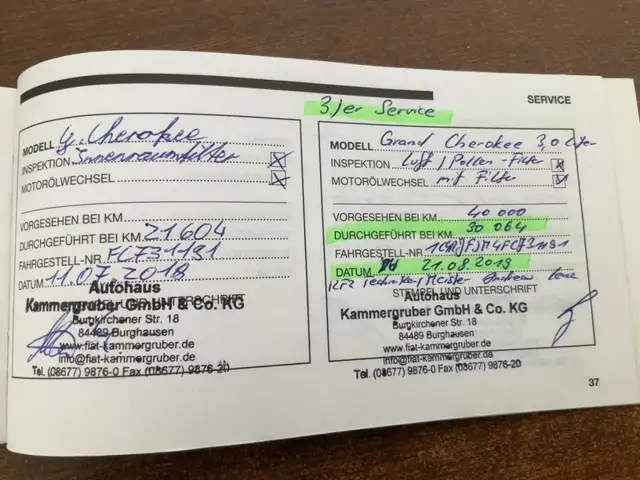 SERVICE
3.)er Service
MODELL G. Cherokee
INSPEKTION Innenraumfilter
MOTORÖLWECHSEL
VORGESEHEN BEI KM
DURCHGEFÜHRT BEI KM 21604
FAHRGESTELL-NR FC731191
DATUM 11.07.2018
Autohaus
Kammergruber GmbH & Co. KG
Burgkirchener Str. 18
84489 Burghausen
www.fiat-kammergruber.de
info@fiat-kammergruber.de
Tel. (08677) 9876-0 Fax (08677) 9876-20
MODELL Grand Cherokee 3,0 Liter
INSPEKTION Luft / Pollen-Filter
MOTORÖLWECHSEL mit Filter
VORGESEHEN BEI KM 40 000
DURCHGEFÜHRT BEI KM 30 064
FAHRGESTELL-NR
DATUM 21.08.2019
KFZ Techniker Meister Andreas
STEMPEL UND UNTERSCHRIFT
Autohaus
Kammergruber GmbH & Co. KG
Burgkirchener Str. 18
84489 Burghausen
www.fiat-kammergruber.de
info@fiat-kammergruber.de
Tel. (08677) 9876-0 Fax (08677) 9876-20
37